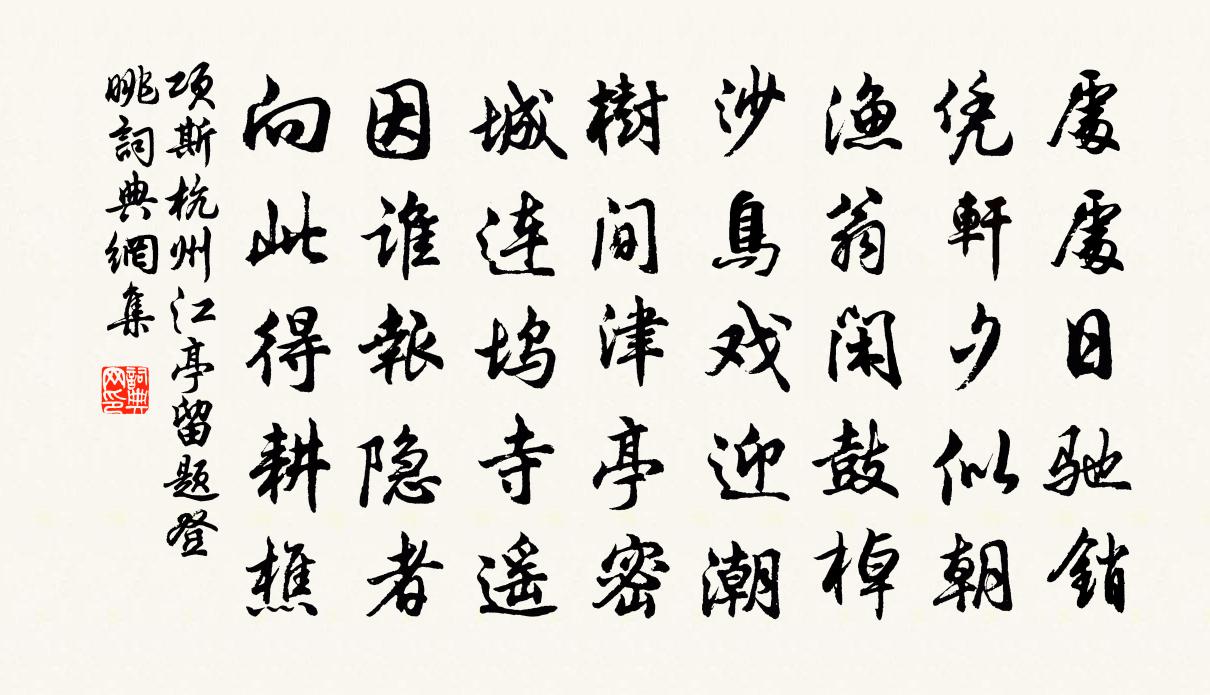 處處日馳銷
凭軒夕似朝
漁翁閑鼓棹
沙鳥戏迎潮
樹间津亭密
城連坞寺遥
因谁報隐者
向此得耕樵
項斯杭州江亭留题登
眺詞典網集
詞典网印